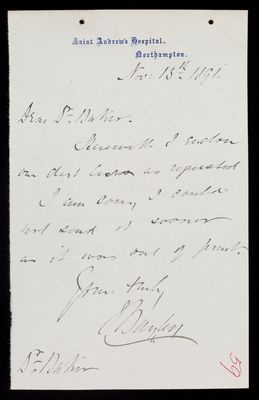 Saint Andrew's Hospital,
Northampton.
Nov: 13th 1891.
Dear Dr Baker.
Herewith I enclose
our diet as requested
I am sorry I could
not send it sooner
as it was out of print.
Yours truly
J Bayley
Dr Baker
59